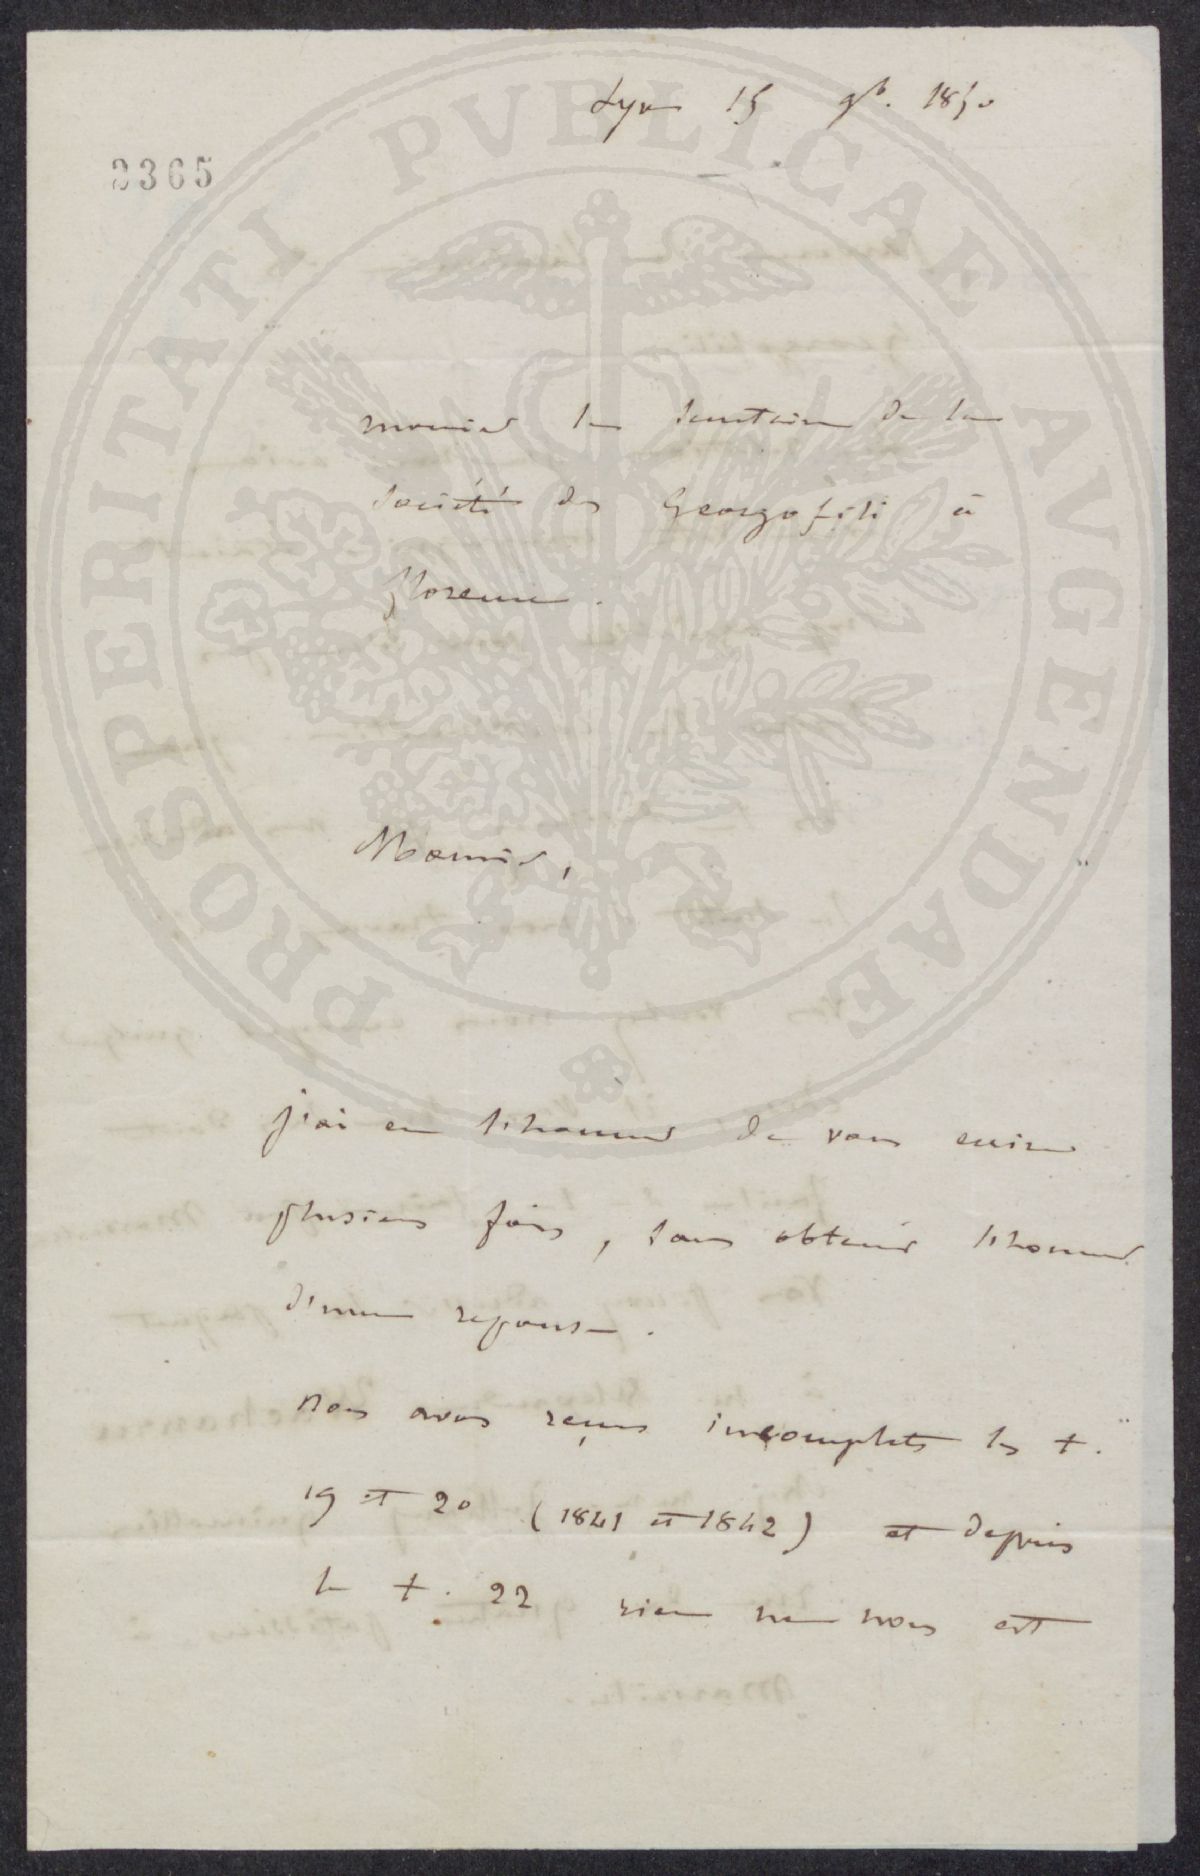 Lyon 15 9b. 1850
2365
monsieur le secretaire de la
société des Georgofili à
florence.
Monsieur,
j'ai eu l'honneur de vous écrire
plusieurs fois, sans obtenir l'honneur
d'une reponse.
nous avons reçus incomplets les t.
19 et 20 (1841 et 1842) et depuis
le t. 22 rien ne nous est
PROSPERITATI PVBLICAE AVGENDAE